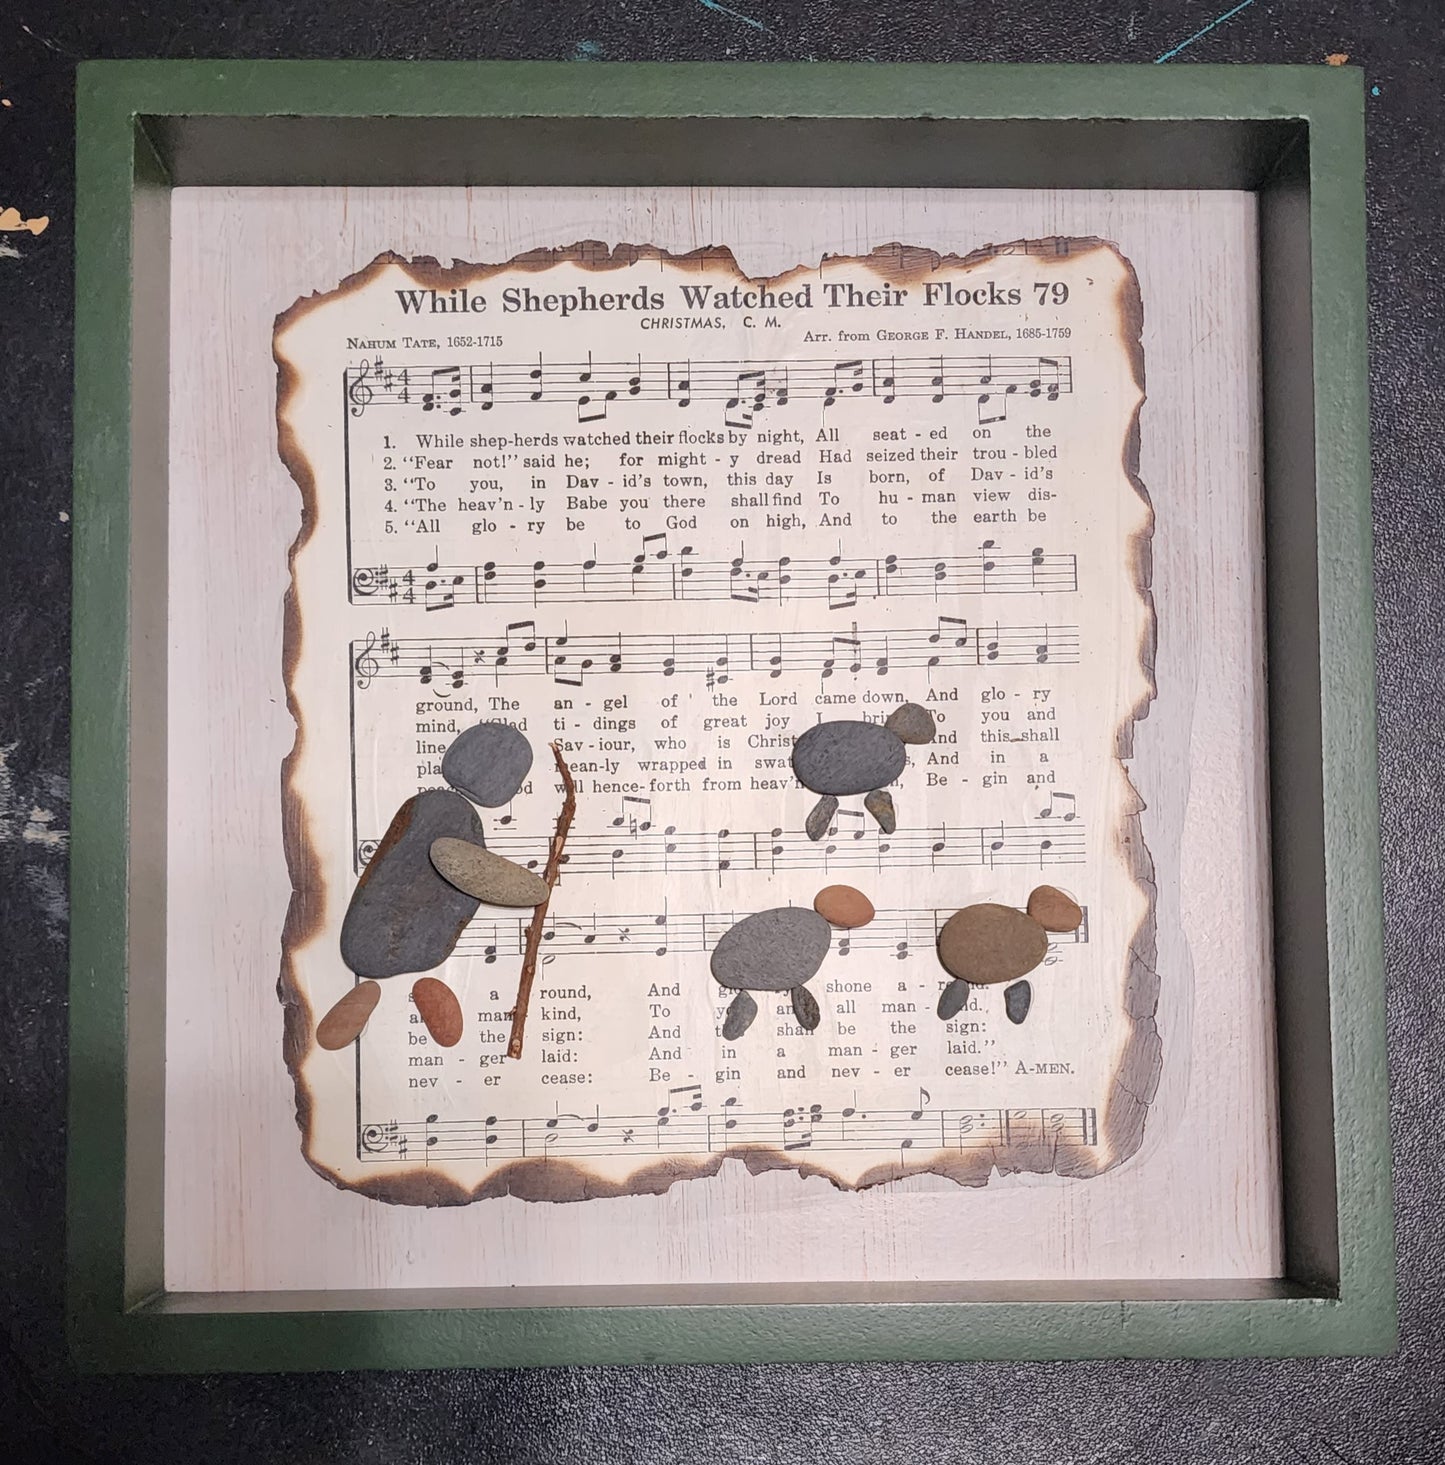 While Shepherds Watched Their Flocks 79
CHRISTMAS, C. M.
NAHUM TATE, 1652-1715
Arr. from GEORGE F. HANDEL, 1685-1759
4 4
1. While shep-herds watched their flocks by night, All seat - ed on the
2. “Fear not!” said he; for might - y dread Had seized their trou - bled
3. “To you, in Dav - id’s town, this day Is born, of Dav - id’s
4. “The heav’n - ly Babe you there shall find To hu - man view dis-
5. “All glo - ry be to God on high, And to the earth be
4 4
ground, The an - gel of the Lord came down, And glo - ry
mind, ti - dings of great joy I To you and
line Sav - iour, who is Christ And this shall
wrapped in And in a
hence- forth from heav’n Be - gin and
a round, And shone a -
man kind, To all man -
be the sign: And be the sign:
man - ger laid: And in a man - ger laid.”
nev - er cease: Be - gin and nev - er cease!” A-MEN.